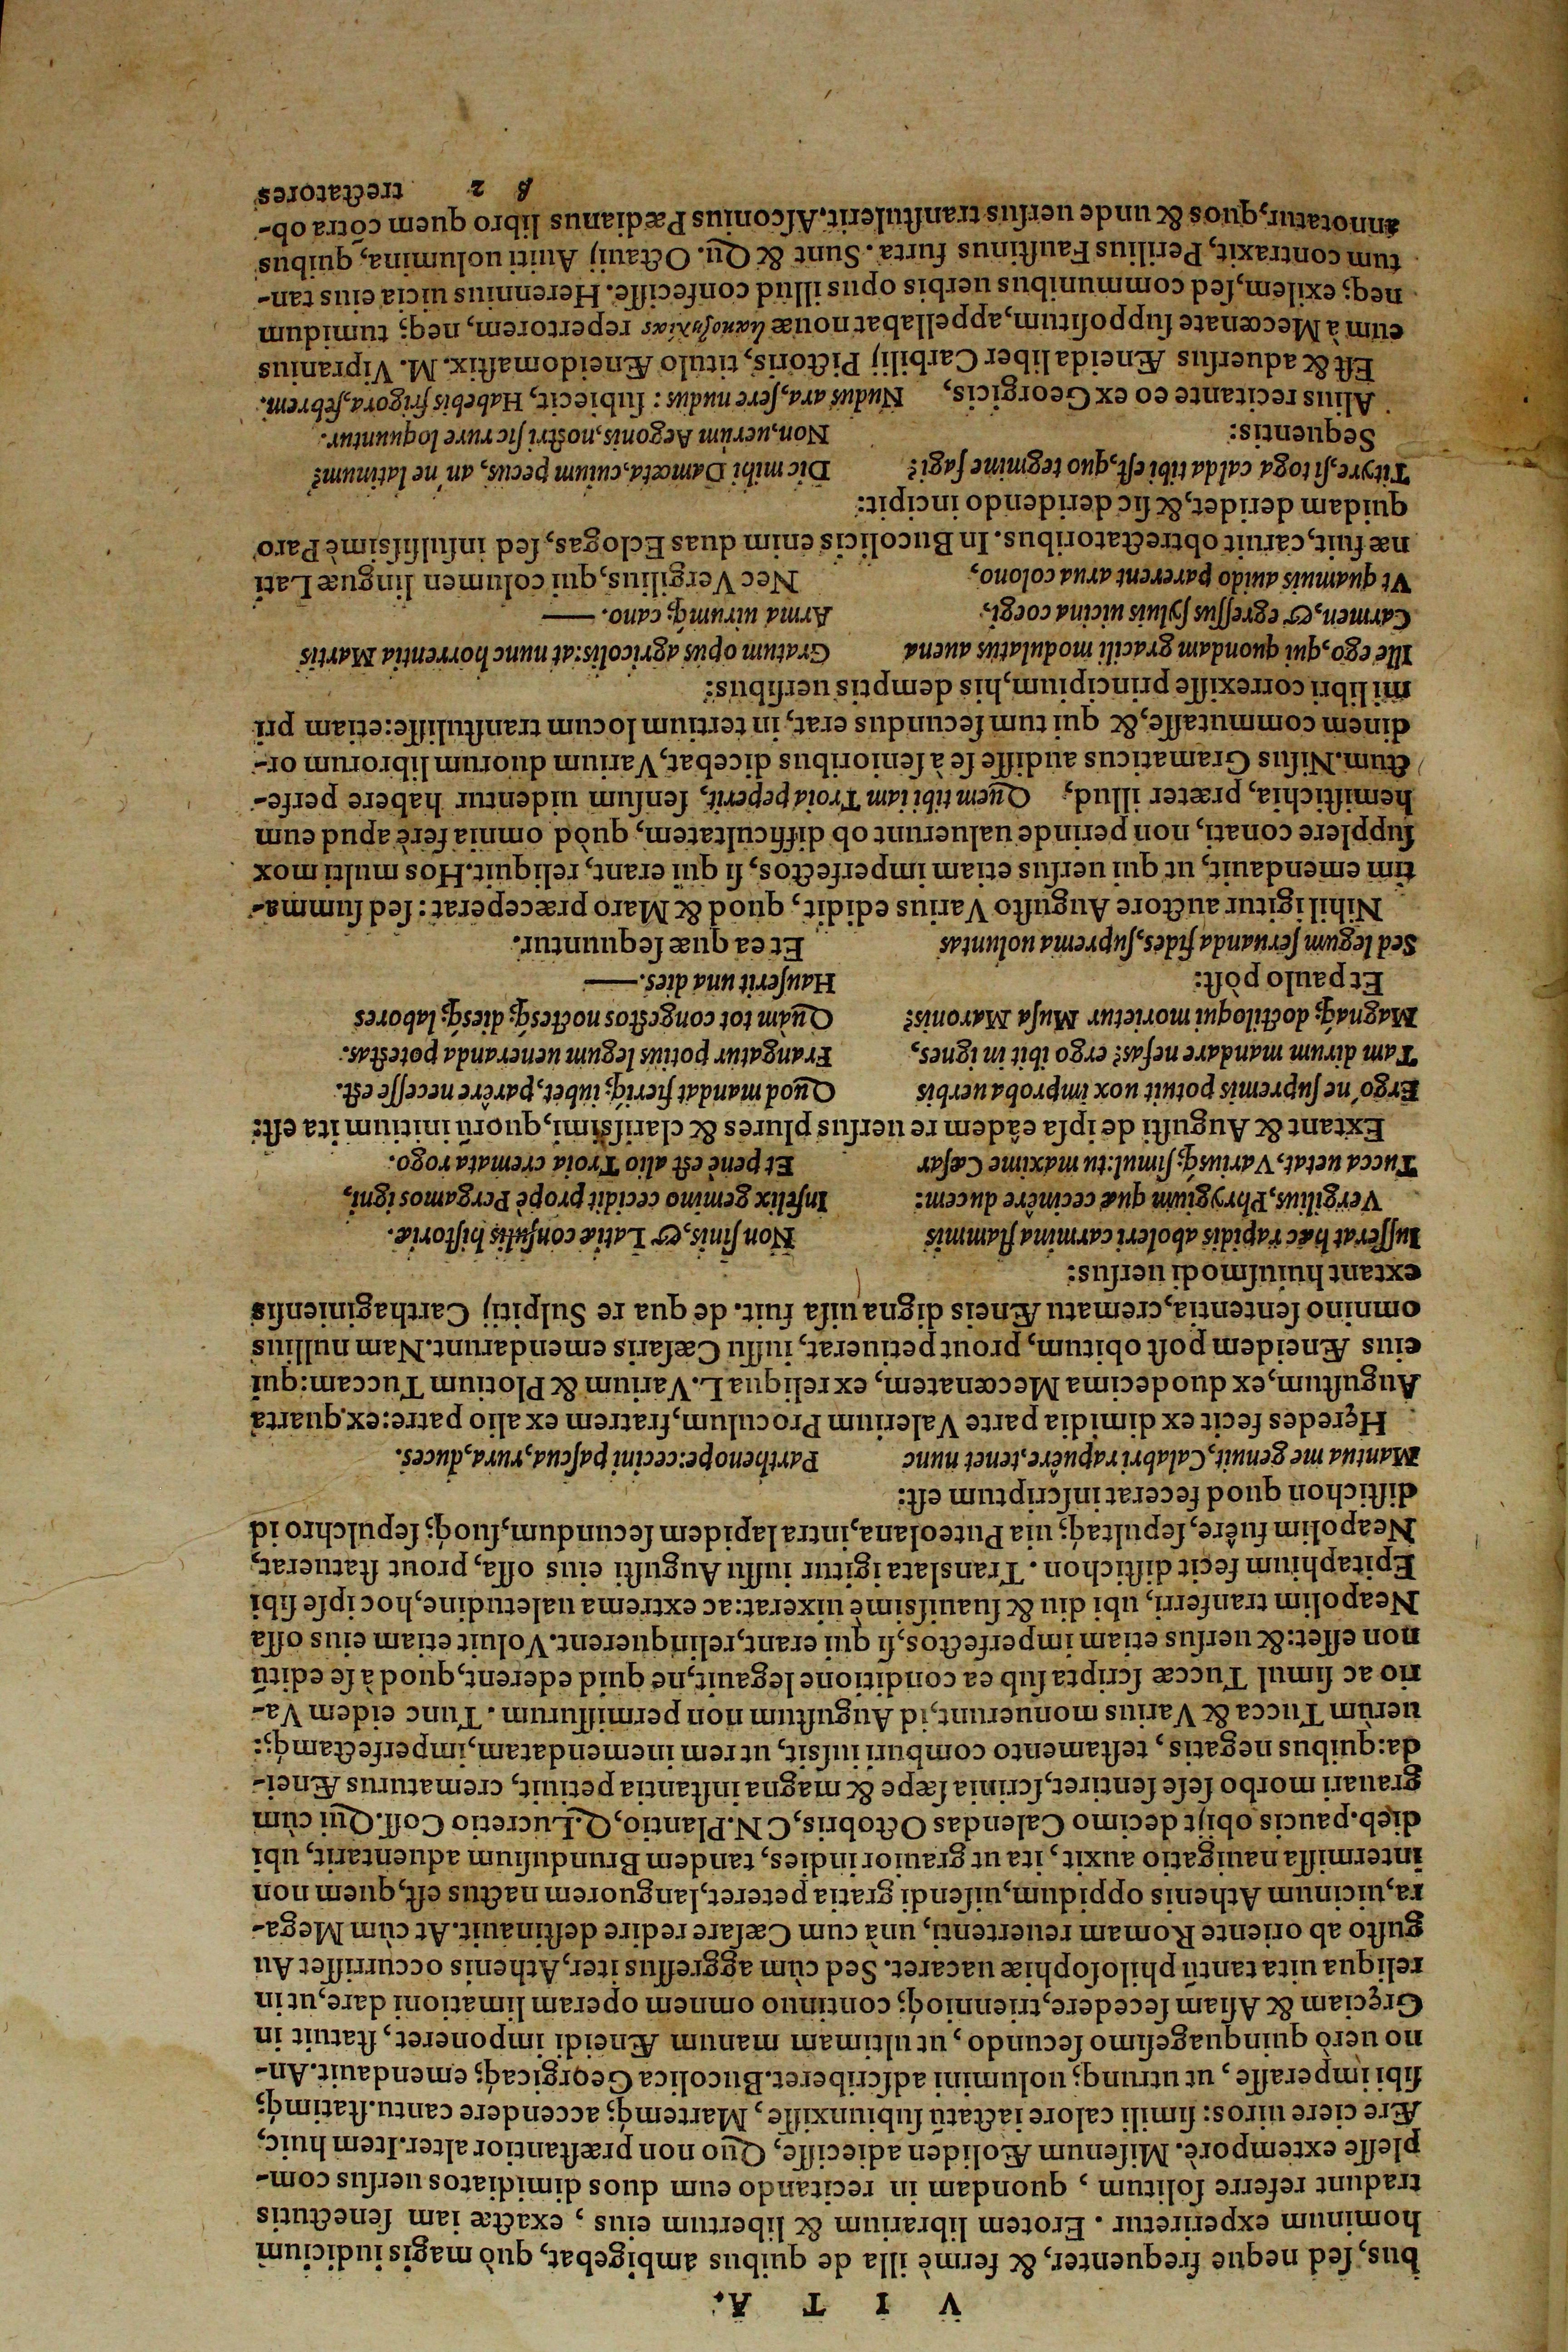 V I T A.
bus, ſed neque frequenter, & fermè illa de quibus ambigebat, quò magis iudicium
hominum experiretur. Erotem librarium & libertum eius, exactæ iam ſenectutis
tradunt referre ſolitum, quondam in recitando eum duos dimidiatos uerſus com-
pleſſe extemporè. Miſenum Æoliden adieciſſe, Quo non præſtantior alter. Item huic,
Ære ciere uiros: ſimili calore iactatū ſubiunxiſſe, Martemq́; accendere cantu. ſtatimq́;
ſibi imperaſſe, ut utrunq; uolumini adſcriberet. Bucolica Georgicaq́; emendauit. An-
no uerò quinquageſimo ſecundo, ut ultimam manum Æneidi imponeret, ſtatuit in
Gręciam & Aſiam ſecedere, triennioq́; continuo omnem operam limationi dare, ut in
reliqua uita tantū philoſophiæ uacaret. Sed cùm aggreſſus iter, Athenis occurriſſet Au
guſto ab oriente Romam reuertenti, unà cum Cæſare redire deſtinauit. At cùm Mega-
ra, uicinum Athenis oppidum, uiſendi gratia peteret, languorem nactus eſt, quem non
intermiſſa nauigatio auxit, ita ut grauior indies, tandem Brunduſium aduentarit, ubi
dieb. paucis obijt decimo Calendas Octobris, CN. Plantio, Q. Lucretio Coſſ. Qui cùm
grauari morbo ſeſe ſentiret, ſcrinia ſæpe & magna inſtantia petiuit, crematurus Ænei-
da: quibus negatis, teſtamento comburi iuſsit, ut rem inemendatam, imperfectamq́;:
uerùm Tucca & Varius monuerunt, id Auguſtum non permiſſurum. Tunc eidem Va-
rio ac ſimul Tuccæ ſcripta ſub ea conditione legauit, ne quid ederent, quod à ſe editū
non eſſet: & uerſus etiam imperfectos, ſi qui erant, relinquerent. Voluit etiam eius oſſa
Neapolim tranferri, ubi diu & ſuauiſsimè uixerat: ac extrema ualetudine, hoc ipſe ſibi
Epitaphium fecit diſtichon. Translata igitur iuſſu Auguſti eius oſſa, prout ſtatuerat,
Neapolim fuêre, ſepultaq́; uia Puteolana, intra lapidem ſecundum, ſuoq́; ſepulchro id
diſtichon quod fecerat inſcriptum eſt:
Mantua me genuit, Calabri rapuêre, tenet nunc Parthenope: cecini paſcua, rura, duces.
Hęredes fecit ex dimidia parte Valerium Proculum, fratrem ex alio patre: ex quarta
Auguſtum, ex duodecima Mecœnatem, ex reliqua L. Varium & Plotium Tuccam: qui
eius Æneidem poſt obitum, prout petiuerat, iuſſu Cæſaris emendarunt. Nam nullius
omnino ſententia, crematu Æneis digna uiſa fuit. de qua re Sulpitij Carthaginienſis
extant huiuſmodi uerſus:
Iuſſerat hæc rapidis aboleri carmina flammis Non ſinis, & Latiæ conſulis hiſtoriæ.
Vergilius, Phrygium quæ cecinêre ducem: Infelix gemino cecidit propè Pergamos igni,
Tucca uetat, Variusq́; ſimul: tu maxime Cæſar Et penè eſt alio Troia cremata rogo.
Extant & Auguſti de ipſa eâdem re uerſus plures & clariſsimi, quorū initium ita eſt:
Ergo'ne ſupremis potuit uox improba uerbis Quod mandat fieriq́; iubet, parêre neceſſe eſt.
Tam dirum mandare nefas? ergo ibit in ignes, Frangatur potius legum ueneranda poteſtas.
Magnaq́; doctiloqui morietur Muſa Maronis? Quàm tot congeſtos noctesq́; diesq́; labores
Et paulo pòſt: Hauſerit una dies.——
Sed legum ſeruanda fides, ſuprema uoluntas Et ea quæ ſequuntur.
Nihil igitur auctore Auguſto Varius edidit, quod & Maro præceperat: ſed ſumma-
tim emendauit, ut qui uerſus etiam imperfectos, ſi qui erant, reliquit. Hos multi mox
ſupplere conati, non perinde ualuerunt ob difficultatem, quòd omnia ferè apud eum
hemiſtichia, præter illud, Quem tibi iam Troia peperit, ſenſum uidentur habere perfe-
ctum. Niſus Gramaticus audiſſe ſe à ſenioribus dicebat, Varium duorum librorum or-
dinem commutaſſe, & qui tum ſecundus erat, in tertium locum tranſtuliſſe: etiam pri
mi libri correxiſſe principium, his demptis uerſibus:
Ille ego, qui quondam gracili modulatus auena Gratum opus agricolis: at nunc horrentia Martis
Carmen, & egreſſus ſyluis uicina coegi, Arma uirumq́; cano.——
Vt quamuis auido parerent arua colono, Nec Vergilius, qui columen linguæ Lati
næ fuit, caruit obtrectatoribus. In Bucolicis enim duas Eclogas, ſed inſulſiſsimè Paro
quidam deridet, & ſic deridendo incipit:
Tityre, ſi toga calda tibi eſt, quo tegmine fagi? Dic mihi Damœta, cuium pecus, an'ne latinum?
Sequentis: Non, uerùm Aegonis, noſtri ſic rure loquuntur.
Alius recitante eo ex Georgicis, Nudus ara, ſere nudus: ſubiecit, Habebis frigora, febrem.
Eſt & aduerſus Æneida liber Carbilij Pictoris, titulo Æneidomaſtix. M. Vipranius
eum à Mecœnate ſuppoſitum, appellabat nouæ κακοζηλίας repertorem, neq; tumidum
neq; exilem, ſed communibus uerbis opus illud confeciſſe. Herennius uicia eius tan-
tum contraxit, Perilius Fauſtinus furta. Sunt & Qu. Octauij Auiti uolumina, quibus
annotatur, quos & unde uerſus tranſtulerit. Aſconius Pædianus libro quem cōtra ob-
β 2 trectatores